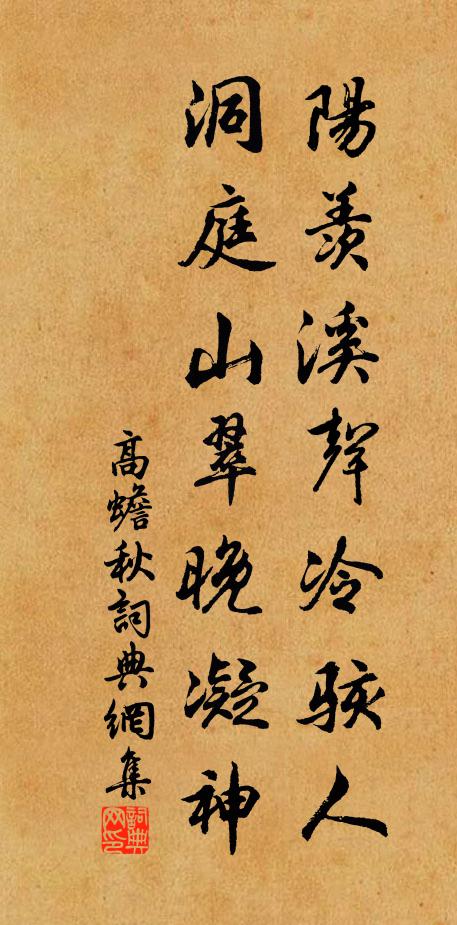 陽羨溪聲冷駭人
洞庭山翠晚凝神
高蟾秋詞典網集
詞典网印